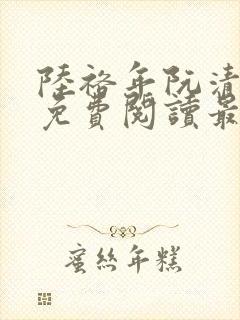 陸裕年阮清
免費閱讀最
蜜絲年糕